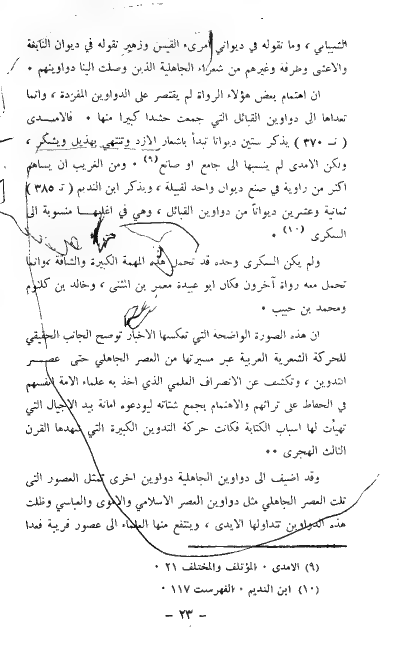 الشيباني ، وما نقوله في ديواني امرىء القيس وزهير نقوله في ديوان النابغة
والاعشى وطرفة وغيرهم من شعراء الجاهلية الذين وصلت الينا دواوينهم ٠
ان اهتمام بعض هؤلاء الرواة لم يقتصر على الدواوين المفردة ، وانما
تعداها الى دواوين القبائل التي جمعت حشدا كبيرا منها ٠ فالآمدى
( تـ ٣٧٠ ) يذكر ستين ديوانا تبدأ باشعار الازد وتنتهي بهذيل ويشكر ،
ولكن الامدى لم ينسبها الى جامع او صانع (٩) ٠ ومن الغريب ان يساهم
اكثر من راوية في صنع ديوان واحد لقبيلة ، ويذكر ابن النديم ( تـ ٣٨٥ )
ثمانية وعشرين ديواناً من دواوين القبائل ، وهي في اغلبها منسوبة الى
السكرى (١٠) ٠
ولم يكن السكرى وحده قد تحمل هذه المهمة الكبيرة والشاقة ، وانما
تحمل معه رواة آخرون فكان ابو عبيدة معمر بن المثنى ، وخالد بن كلثوم
ومحمد بن حبيب ٠
ان هذه الصورة الواضحة التي تعكسها الاخبار توضح الجانب الحقيقي
للحركة الشعرية العربية عبر مسيرتها من العصر الجاهلي حتى عصر
التدوين ، وتكشف عن الانصراف العلمي الذي اخذ به علماء الامة انفسهم
في الحفاظ على تراثهم والاهتمام بجمع شتاته ليودعوه امانة بيد الاجيال التي
تهيأت لها اسباب الكتابة فكانت حركة التدوين الكبيرة التي شهدها القرن
الثالث الهجرى ٠٠
وقد اضيف الى دواوين الجاهلية دواوين اخرى تمثل العصور التى
تلت العصر الجاهلي مثل دواوين العصر الاسلامي والاموى والعباسي وظلت
هذه الدواوين تتداولها الايدى ، وينتفع منها العلماء الى عصور قريبة فعدا
(٩) الامدى ٠ المؤتلف والمختلف ٢١ ٠
(١٠) ابن النديم ٠ الفهرست ١١٧ ٠
- ٢٣ -